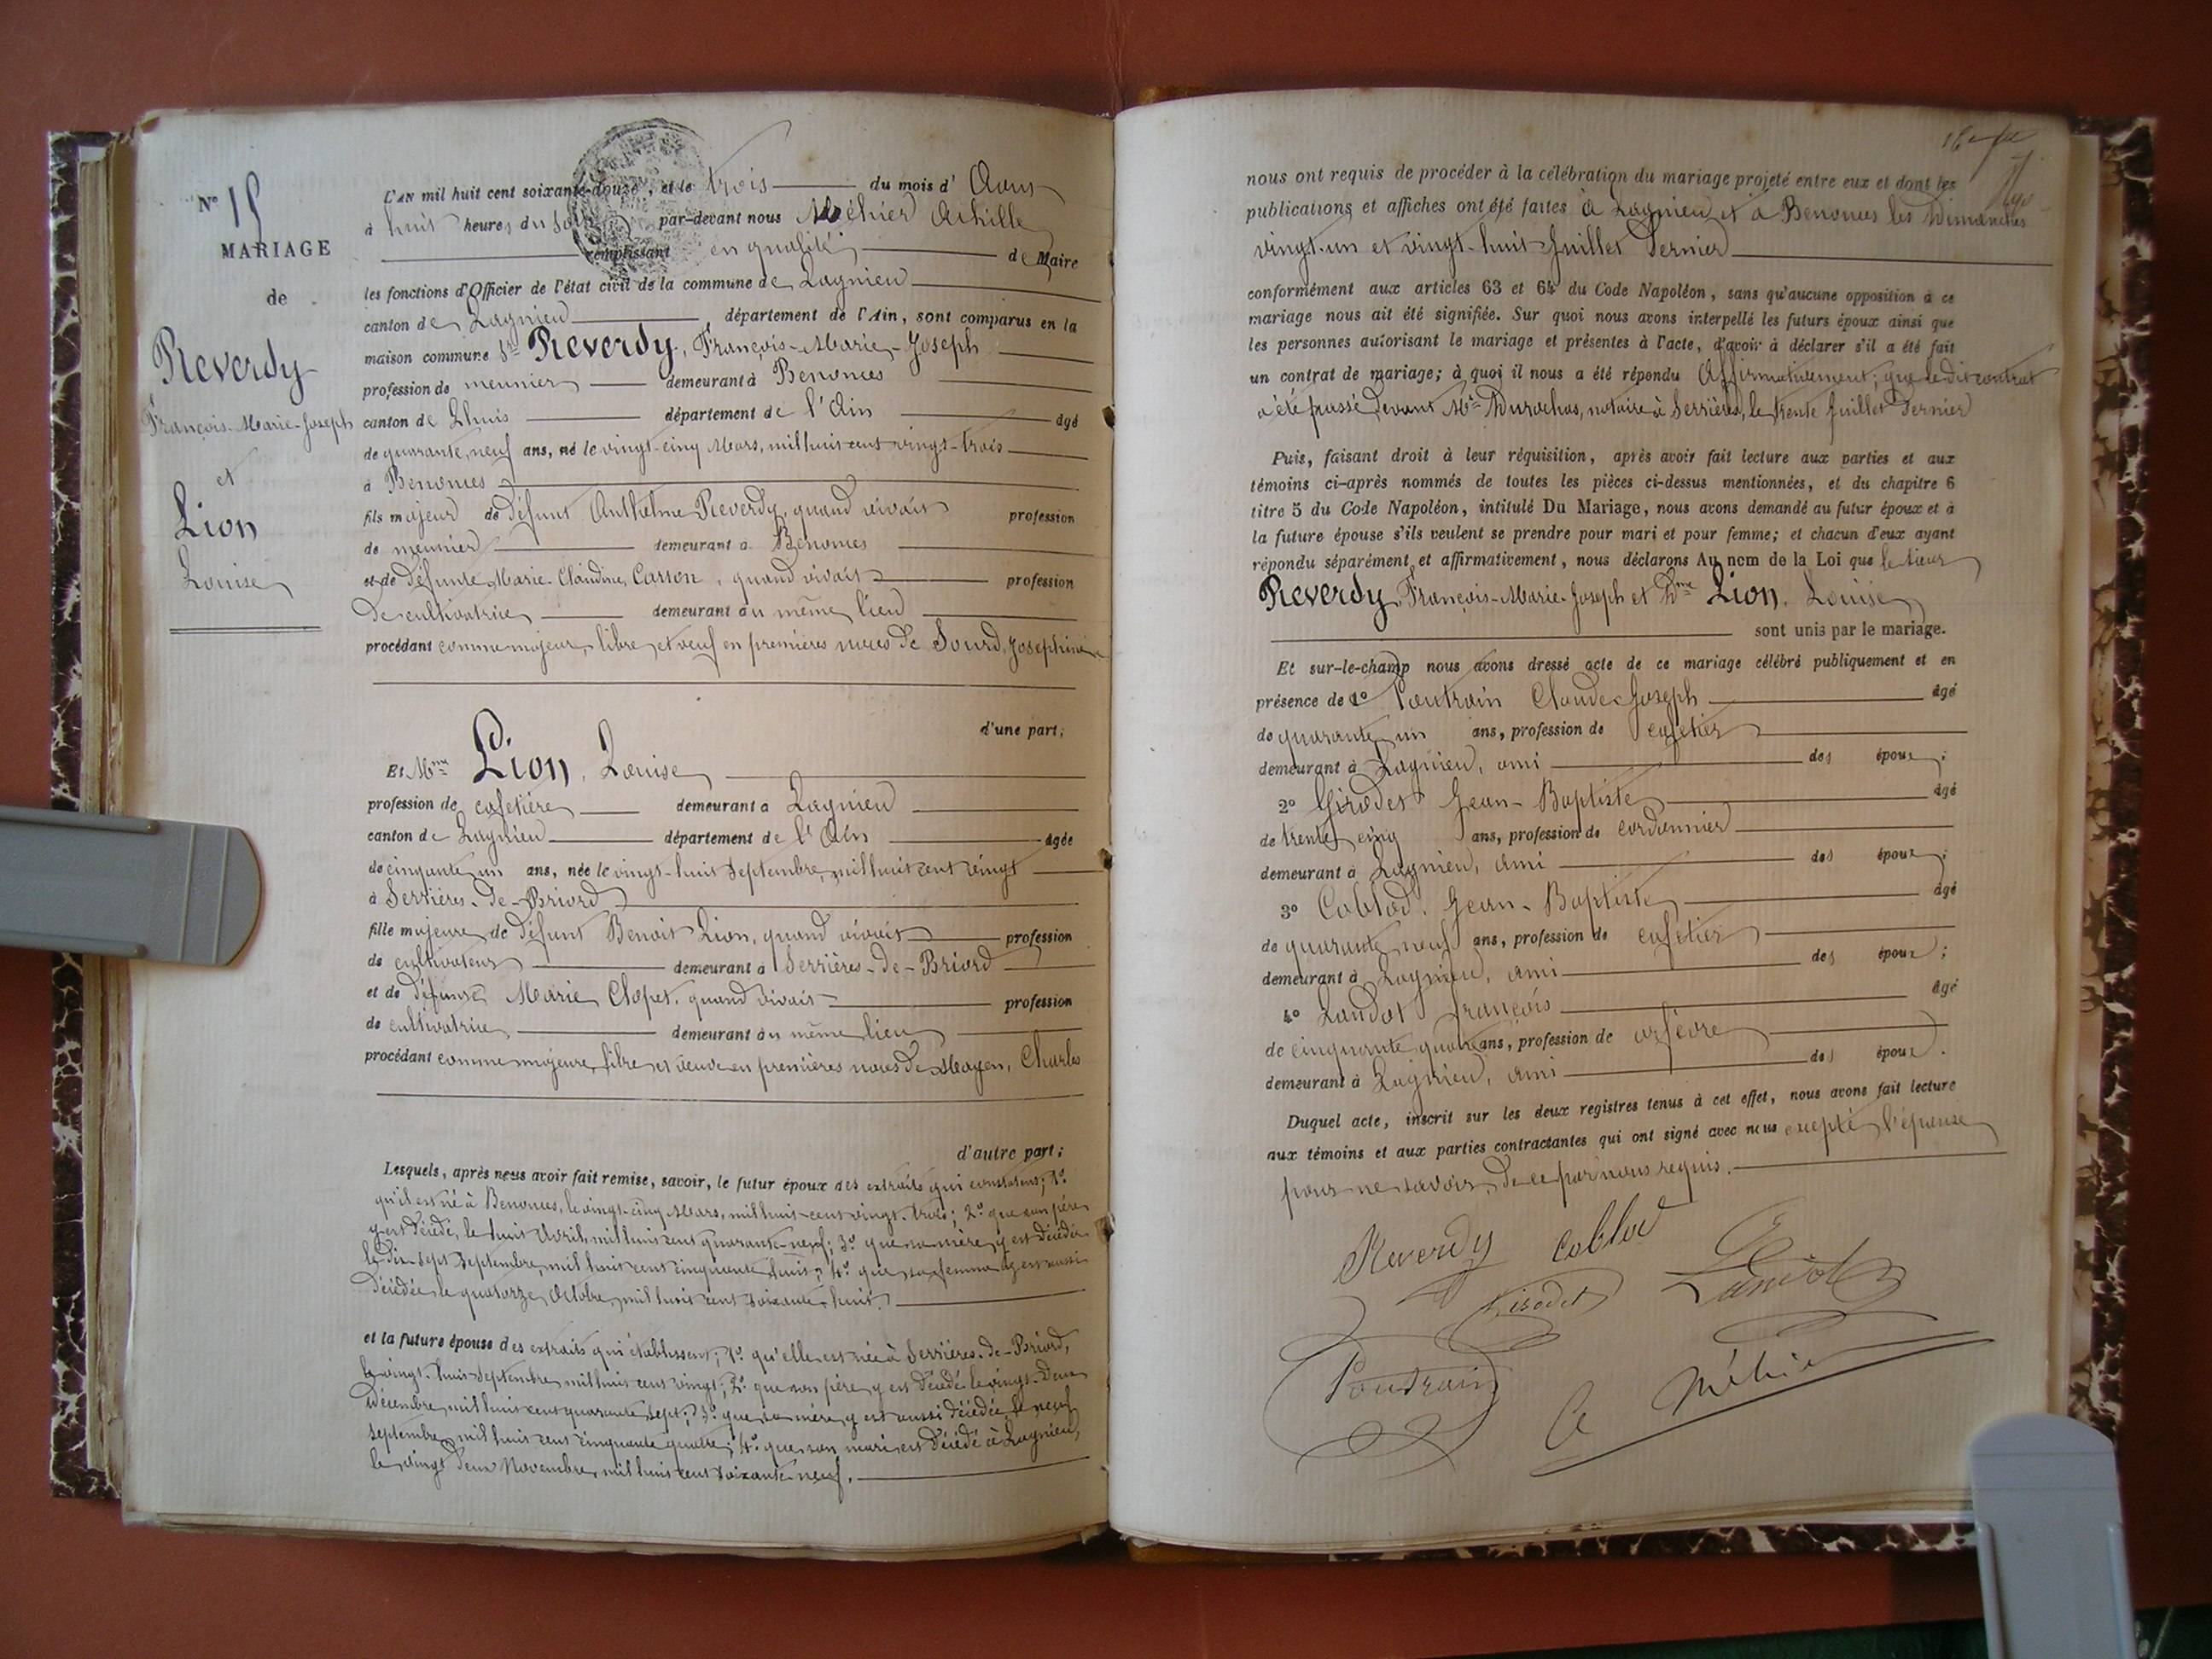 N° 15
MARIAGE
de
Reverdy
François-Marie-Joseph
et
Lion
Louise
L'AN mil huit cent soixante-douze, et le trois du mois d' Août
à huit heures du soir par-devant nous Méhier Achille
remplissant en qualité de Maire
les fonctions d'Officier de l'état civil de la commune de Lagnieu
canton de Lagnieu département de l'Ain, sont comparus en la
maison commune Sr Reverdy, François-Marie-Joseph
profession de meunier demeurant à Benonces
canton de Lhuis département de l'Ain âgé
de quarante neuf ans, né le vingt-cinq Mars, mil huit cent vingt-trois
à Benonces
fils majeur de défunt Anthelme Reverdy, quand vivait profession
de meunier demeurant à Benonces
et de défunte Marie-Claudine, Carron, quand vivait profession
de cultivatrice demeurant au même lieu
procédant comme majeur, libre, et veuf en premières noces de Sourd, Josephine
d'une part;
Et Mme Lion, Louise
profession de cafetière demeurant à Lagnieu
canton de Lagnieu département de l'Ain âgée
de cinquante un ans, née le vingt-huit Septembre, mil huit cent vingt
à Serrières-de-Briord
fille majeure de défunt Benoit Lion, quand vivait profession
de cultivateur demeurant à Serrières-de-Briord
et de défunte Marie Chapet, quand vivait profession
de cultivatrice demeurant au même lieu
procédant comme majeure, libre et veuve en premières noces de Mayen, Charles
d'autre part;
Lesquels, après nous avoir fait remise, savoir, le futur époux des extraits qui constatent; 1°
qu'il est né à Benonces, le vingt-cinq Mars, mil huit-cent vingt-trois; 2° que son père
y est décédé, le huit Avril, mil huit cent quarante-neuf; 3° que sa mère y est décédée
le dix-sept Septembre, mil huit cent cinquante huit; 4° que sa femme y est aussi
décédée le quatorze Octobre, mil huit cent soixante-huit.
et la future épouse des extraits qui établissent; 1° qu'elle est née à Serrières-de-Briord,
le vingt-huit Septembre mil huit cent vingt; 2° que son père y est décédé le vingt-deux
Décembre, mil huit cent quarante sept; 3° que sa mère y est aussi décédée le neuf
Septembre mil huit cent cinquante quatre; 4° que son mari est décédé à Lagnieu,
le vingt deux Novembre, mil huit cent soixante-neuf.
nous ont requis de procéder à la célébration du mariage projeté entre eux et dont les
publications et affiches ont été faites à Lagnieu et à Benonces les Dimanches
vingt-un et vingt-huit Juillet dernier
conformément aux articles 63 et 64 du Code Napoléon, sans qu'aucune opposition à ce
mariage nous ait été signifiée. Sur quoi nous avons interpellé les futurs époux ainsi que
les personnes autorisant le mariage et présentes à l'acte, d'avoir à déclarer s'il a été fait
un contrat de mariage; à quoi il nous a été répondu Affirmativement; que le dit contrat
a été passé devant Me Durochas, notaire à Serrières, le trente Juillet dernier
Puis, faisant droit à leur réquisition, après avoir fait lecture aux parties et aux
témoins ci-après nommés de toutes les pièces ci-dessus mentionnées, et du chapitre 6
titre 5 du Code Napoléon, intitulé Du Mariage, nous avons demandé au futur époux et à
la future épouse s'ils veulent se prendre pour mari et pour femme; et chacun d'eux ayant
répondu séparément et affirmativement, nous déclarons Au nom de la Loi que le sieur
Reverdy, François-Marie-Joseph et Dme Lion, Louise
sont unis par le mariage.
Et sur-le-champ nous avons dressé acte de ce mariage célébré publiquement et en
présence de 1° Poutrain Claude-Joseph âgé
de quarante un ans, profession de cafetier
demeurant à Lagnieu, ami des époux;
2° Girodet Jean-Baptiste âgé
de trente cinq ans, profession de cordonnier
demeurant à Lagnieu, ami des époux;
3° Coblod, Jean-Baptiste âgé
de quarante neuf ans, profession de cafetier
demeurant à Lagnieu, ami des époux;
4° Landot François âgé
de cinquante quatre ans, profession de orfèvre
demeurant à Lagnieu, ami des époux.
Duquel acte, inscrit sur les deux registres tenus à cet effet, nous avons fait lecture
aux témoins et aux parties contractantes qui ont signé avec nous excepté l'épouse
pour ne savoir, de ce par nous requis.
Reverdy Coblod
Girodet Landot
Poutrain A Méhier